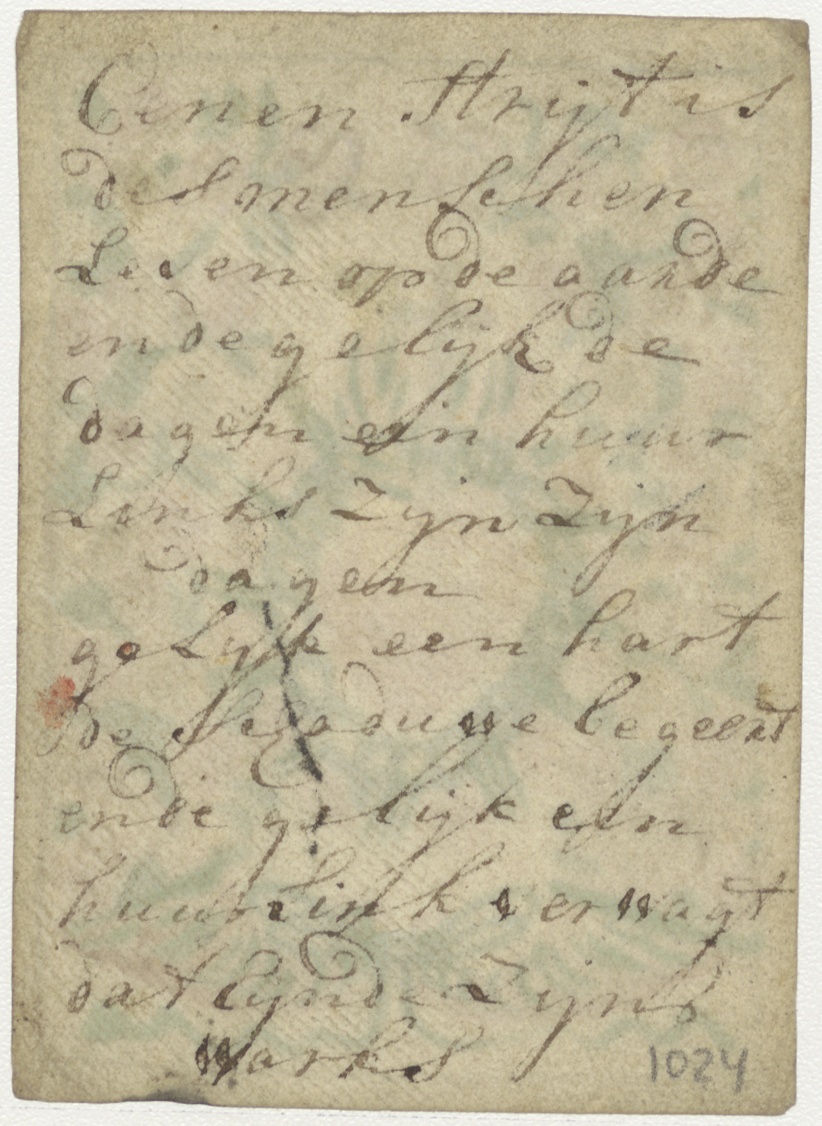 Eenen strijt is
des menschen
Leven op de aarde
ende gelijk de
dagen ein huur
Links Zijn Zijn
dagen
gelijk een hart
de schaduwe begeert
ende gelijk ein
huurlink verwagt
dat Eynde Zijns
warks
1024